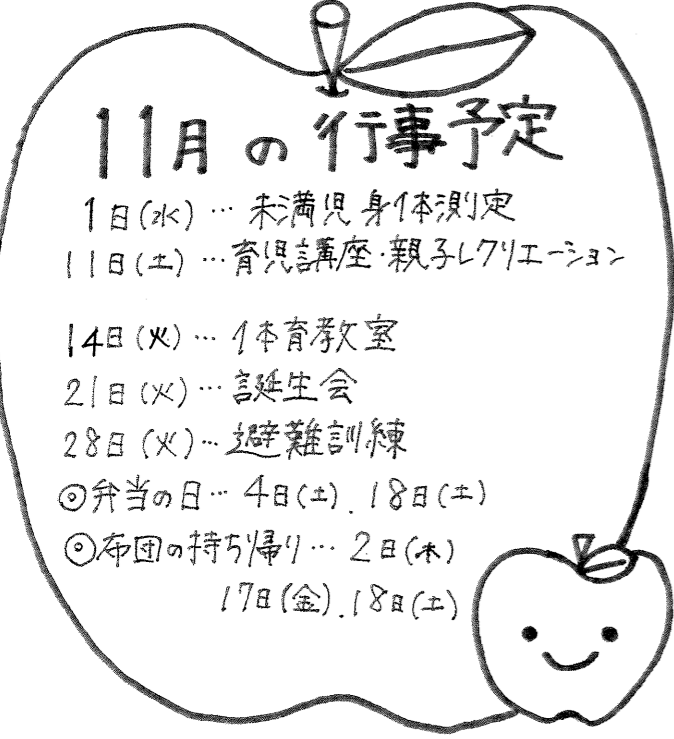 11月の行事予定
1日(水)…未満児身体測定
11日(土)…育児講座・親子レクリエーション
14日(火)…体育教室
21日(火)…誕生会
28日(火)…避難訓練
◎弁当の日…4日(土).18日(土)
◎布団の持ち帰り…2日(木)
17日(金).18日(土)